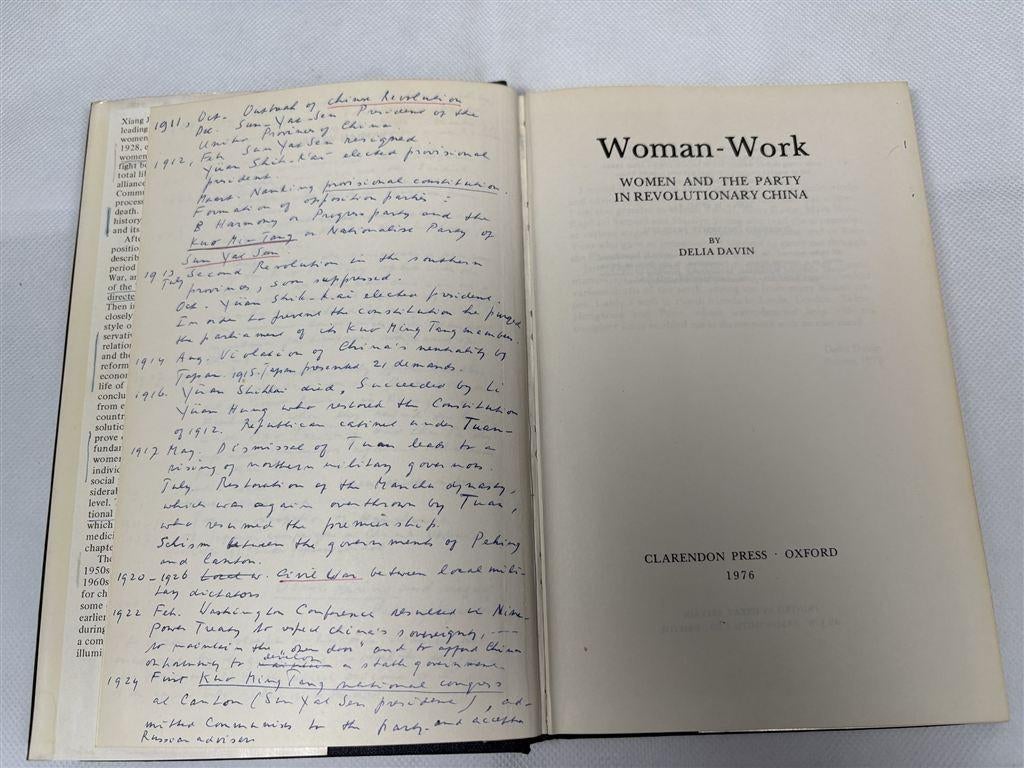 Xiang J
leading
women
1928, e
women
fight b
total li
alliance
Commu
process
death.
history
and its
Afte
positio
describ
period
War, an
of the
directe
Then i
closely
style o
servati
relatio
and the
reform
econom
life of
conclu
from e
countr
solutio
prove
fundam
women
individ
social
siderab
level. T
tional
which
medici
chapte
The
1950s
1960s
for ch
some
earlier
during
a com
illumi
1911, Oct. Outbreak of Chinese Revolution
Dec. Sun-Yat-Sen President of the
United Provinces of China
1912, Feb. Sun Yat Sen resigned
Yüan Shih-K'ai elected provisional
president.
March. Nanking provisional constitution.
Formation of opposition parties:
Harmony or Progress party and the
Kuo Min-Tang or Nationalist Party of
Sun Yat Sen
1913 Second Revolution in the southern
July provinces, soon suppressed.
Oct. Yüan Shih-K'ai elected president.
In order to prevent the constitution he purged
the parliament of its Kuo Ming Tang members.
1914 Aug. Violation of China's neutrality by
Japan. 1915. Japan presented 21 demands.
1916. Yüan Shihkai died, succeeded by Li
Yüan Hung who restored the Constitution
of 1912. Republican cabinet under Tuan-
1917 May. Dismissal of Tuan leads to a
rising of northern military governors.
July. Restoration of the Manchu dynasty,
which was again overthrown by Tuan,
who resumed the premiership.
Schism between the governments of Peking
and Canton.
1920-1926 Civil War between local mili-
tary dictators
1922 Feb. Washington Conference resulted in Nine
Power Treaty to respect China's sovereignty,
to maintain the "open door" and to afford China
opportunity to develop a stable government
1924 First Kuo Ming Tang national congress
at Canton (Sun Yat Sen president), ad-
mitted Communists to the party and accepted
Russian advisers
Woman-Work
WOMEN AND THE PARTY
IN REVOLUTIONARY CHINA
BY
DELIA DAVIN
CLARENDON PRESS · OXFORD
1976